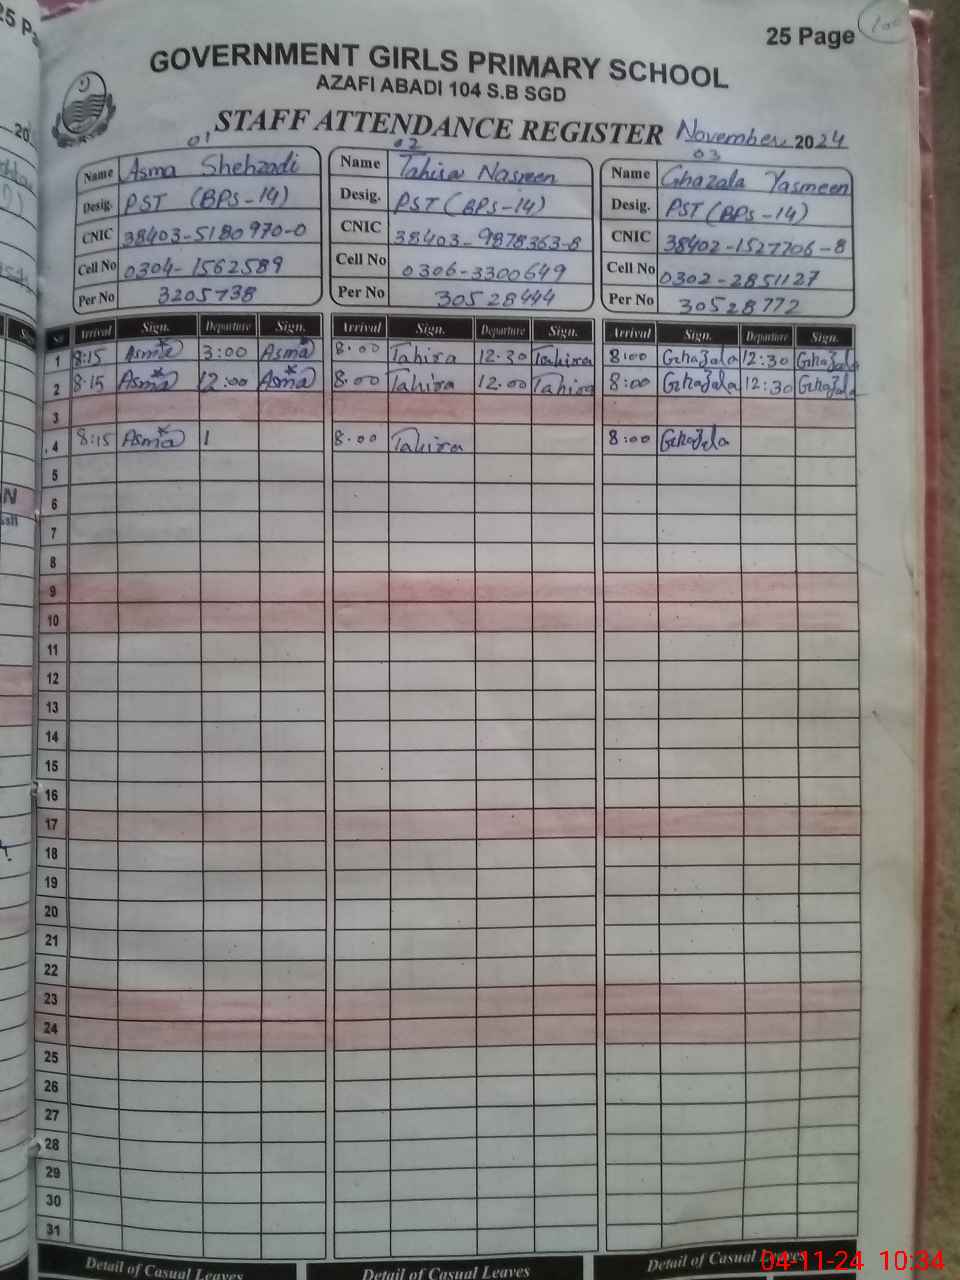 25 Page
GOVERNMENT GIRLS PRIMARY SCHOOL
AZAFI ABADI 104 S.B SGD
STAFF ATTENDANCE REGISTER November 2024
01 02 03
Name Asma Shehzadi Name Tahira Nasreen Name Ghazala Yasmeen
Desig. PST (BPS-14) Desig. PST (BPS-14) Desig. PST (BPS-14)
CNIC 38403-5180970-0 CNIC 38403-9878363-8 CNIC 38402-1527706-8
Cell No 0304-1562589 Cell No 0306-3300649 Cell No 0302-2851127
Per No 3205738 Per No 30528444 Per No 30528772
Arrival Sign. Departure Sign. Arrival Sign. Departure Sign. Arrival Sign. Departure Sign.
1 8:15 Asma 3:00 Asma 8.00 Tahira 12.30 Tahira 8:00 Ghazala 12:30 Ghazala
2 8.15 Asma 12:00 Asma 8.00 Tahira 12.00 Tahira 8:00 Ghazala 12:30 Ghazala
3
4 8:15 Asma 1 8.00 Tahira 8:00 Ghazala
5
6
7
8
9
10
11
12
13
14
15
16
17
18
19
20
21
22
23
24
25
26
27
28
29
30
31
Detail of Casual Leaves Detail of Casual Leaves Detail of Casual Leaves
04-11-24 10:34